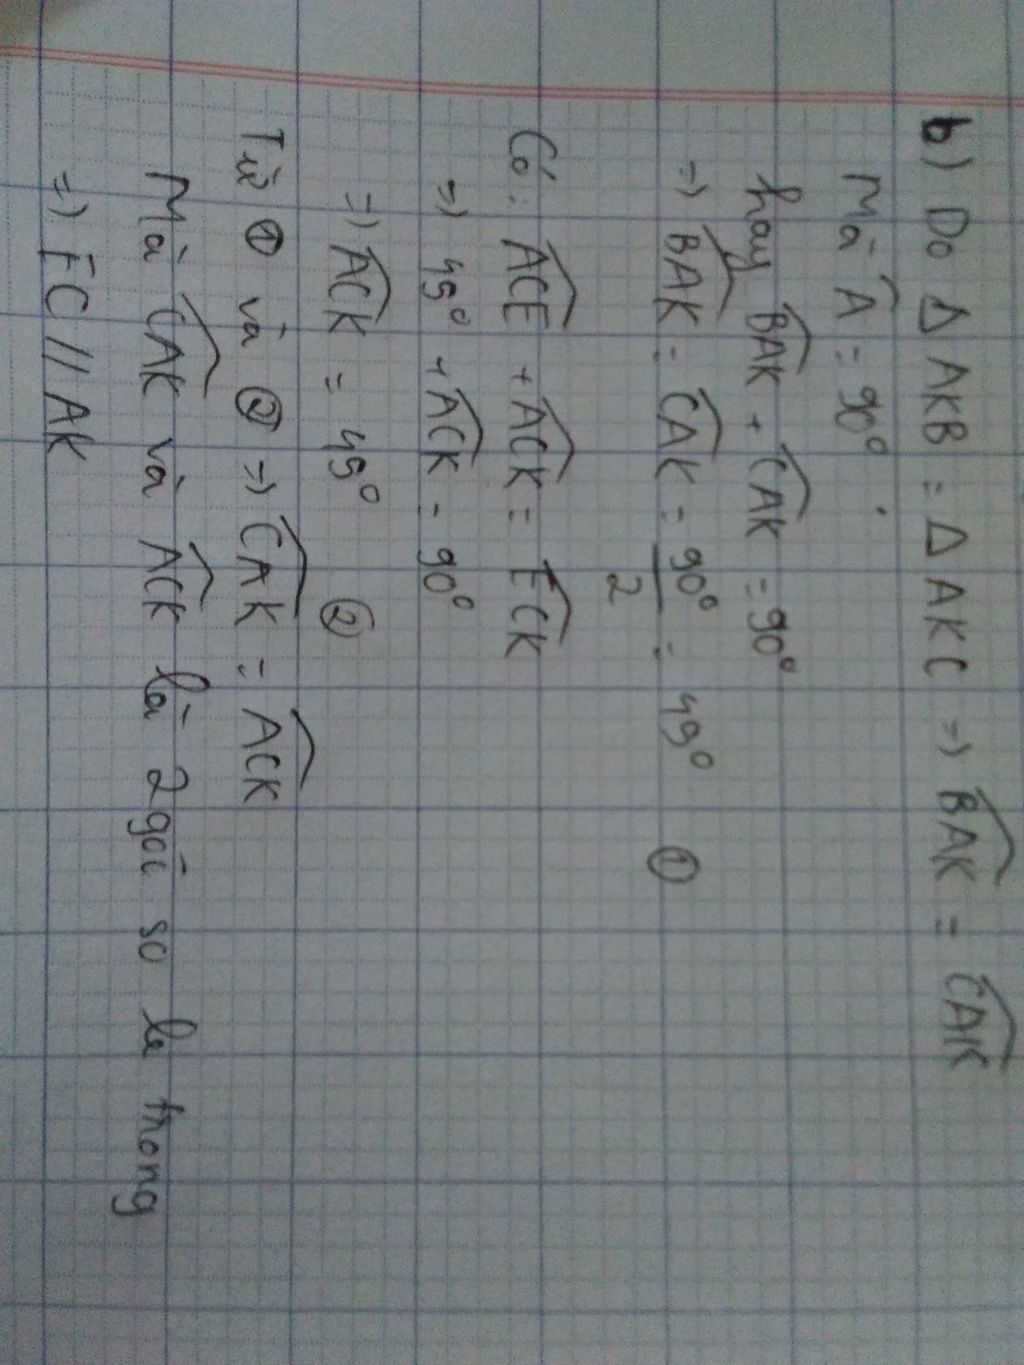 b) Do Δ AKB = Δ AKC => BAK = CAK
Mà A = 90°.
hay BAK + CAK = 90°
=> BAK = CAK = 90°/2 = 45° ①
Có: ACE + ACK = ECK
=> 45° + ACK = 90°
=> ACK = 45° ②
Từ ① và ② => CAK = ACK
Mà CAK và ACK là 2 gói so le trong
=> EC // AK